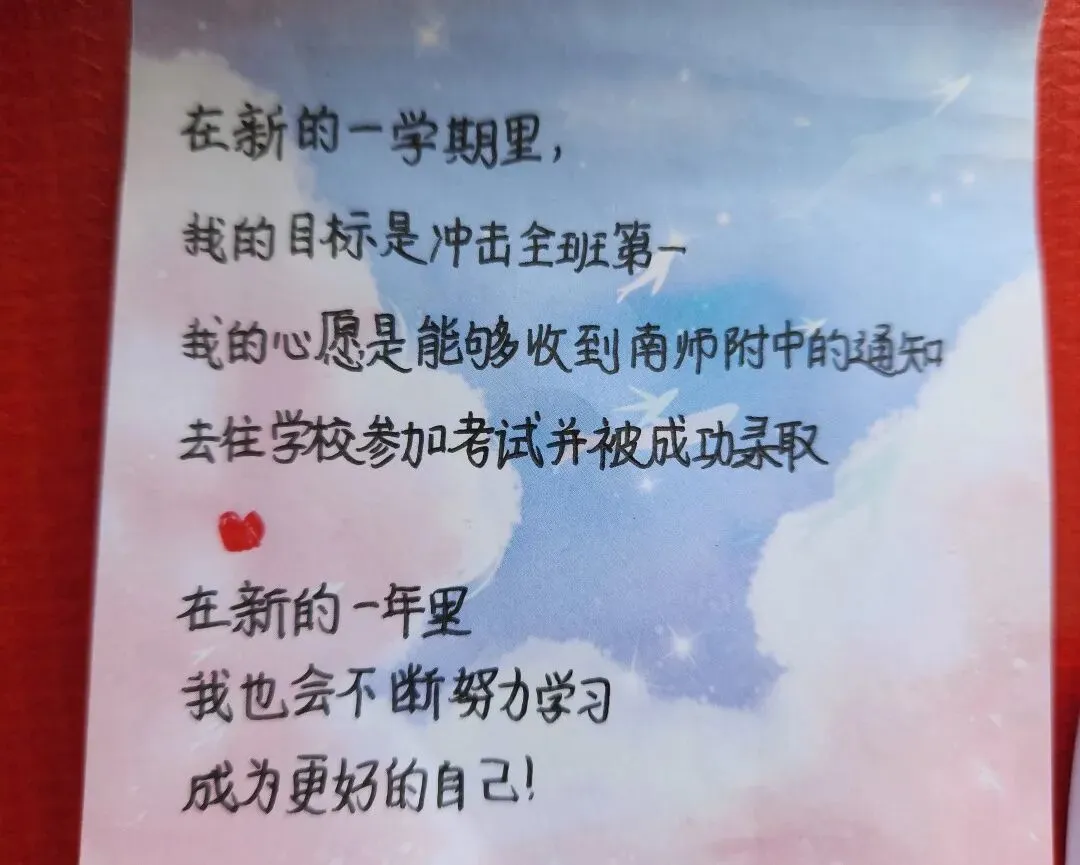 在新的一学期里，
我的目标是冲击全班第一
我的心愿是能够收到南师附中的通知
去往学校参加考试并被成功录取
在新的一年里
我也会不断努力学习
成为更好的自己！